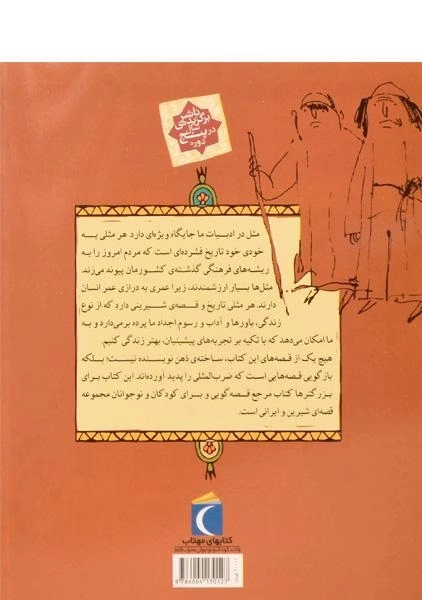 ناشر
برگزیده‌ی
سال
در پنج
دوره
مثل در ادبیات ما جایگاه ویژه‌ای دارد. هر مثلی به
خودی خود تاریخ فشرده‌ای است که مردم امروز را به
ریشه‌های فرهنگی گذشته‌ی کشورمان پیوند می‌زند.
مثل‌ها بسیار ارزشمندند، زیرا عمری به درازی عمر انسان
دارند. هر مثلی تاریخ و قصه‌ی شیرینی دارد که از نوع
زندگی، باورها و آداب و رسوم اجداد ما پرده برمی‌دارد و به
ما امکان می‌دهد که با تکیه بر تجربه‌های پیشینیان، بهتر زندگی کنیم.
هیچ یک از قصه‌های این کتاب، ساخته‌ی ذهن نویسنده نیست؛ بلکه
بازگویی قصه‌هایی است که ضرب‌المثلی را پدید آورده‌اند. این کتاب برای
بزرگترها کتاب مرجع قصه‌گویی و برای کودکان و نوجوانان مجموعه
قصه‌ای شیرین و ایرانی است.
کتابهای مهتاب
واحد کودک و نوجوان محراب قلم
9786004130127